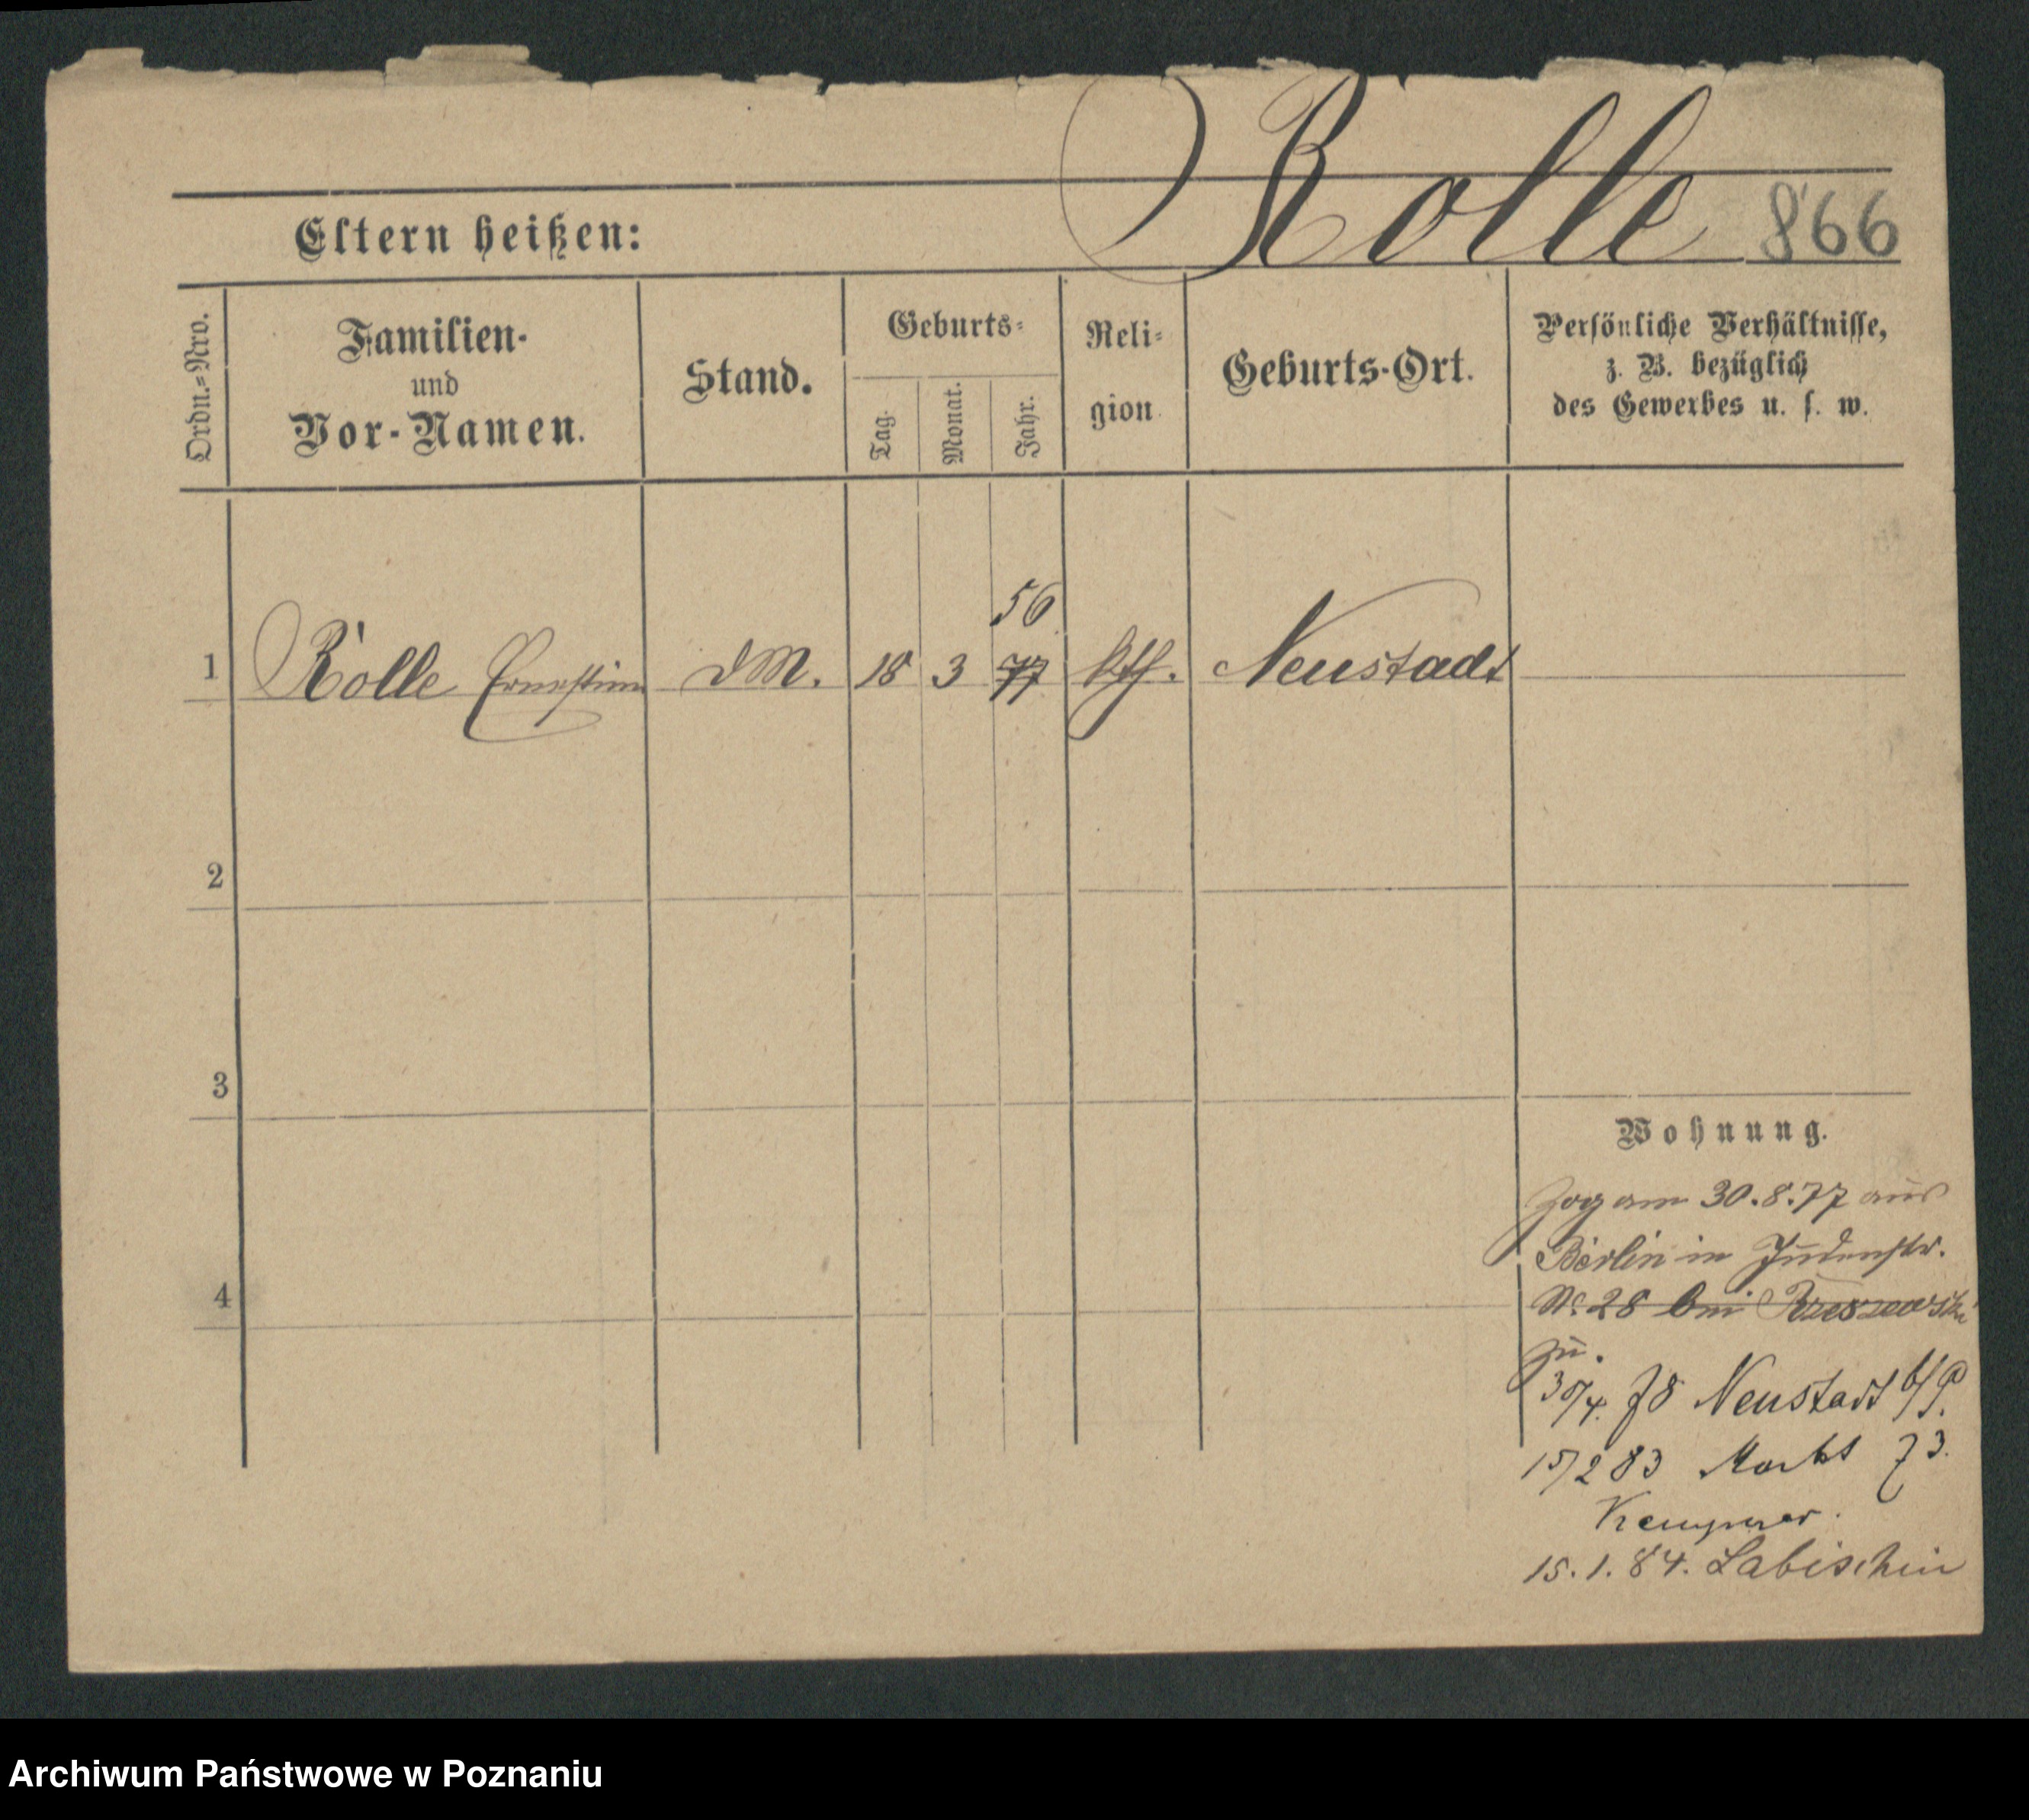 Rolle 866
Eltern heißen:
Ordn.=Nro.
Familien-
und
Vor-Namen.
Stand.
Geburts-
Tag.
Monat.
Jahr.
Reli-
gion
Geburts-Ort.
Persönliche Verhältnisse,
z. B. bezüglich
des Gewerbes u. s. w.
56
1 Rolle Ernestine dM. 18 3 77 kth. Neustadt
2
3
Wohnung.
zog am 30.8.77 aus
Berlin in Judenstr.
4
No 28 bei Brzezewski
zu.
30/4. 78 Neustadt b/P.
15/2 83 Markt 73.
Kempner.
15.1.84. Labischin
Archiwum Państwowe w Poznaniu